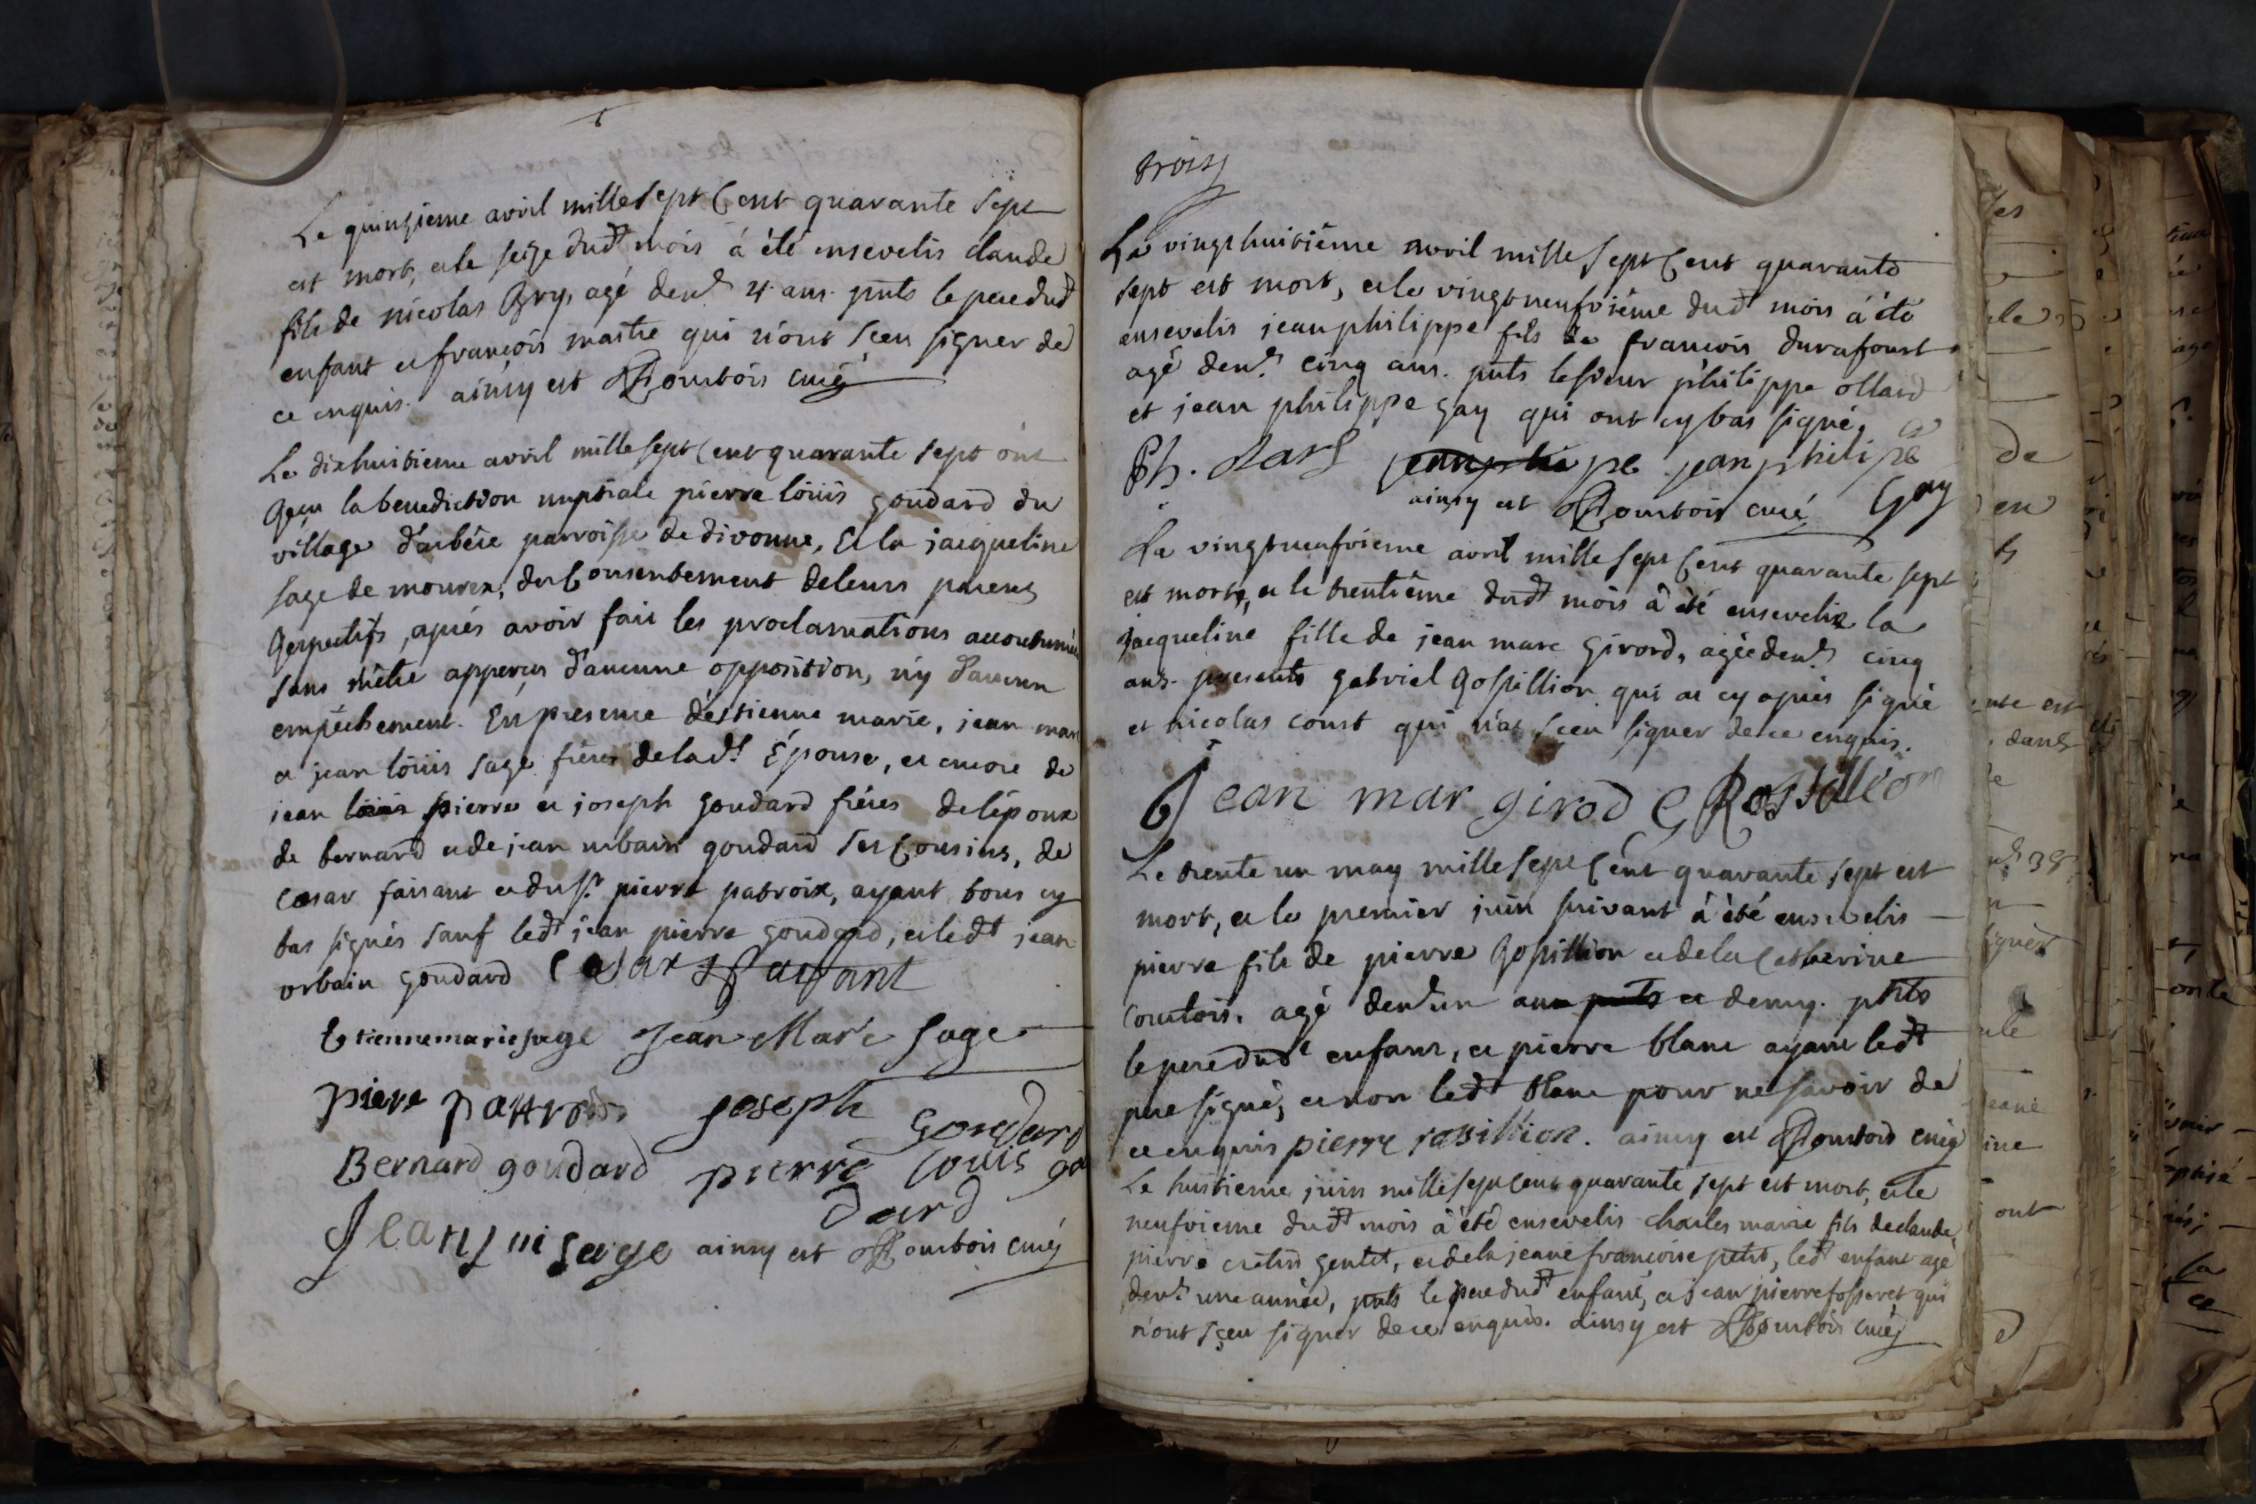 Le quinzieme avril mille sept Cent quarante sept
est mort, et le seize dudt mois á été ensevelis claude
fils de nicolas Gry, agé denv. 4 ans. pnts le pere dudt
enfant et françois maitre qui n'ont sceu signer de
ce enquis. ainsy est Courtois curé
Le dixhuitieme avril mille sept Cent quarante sept ont
Reçu la benediction nuptiale pierre loüis goudard du
village d'arbére parroisse de divonne, Et la jacqueline
sage de mourex, du Consentement de leurs parens
Respectifs, aprés avoir fait les proclamations accoutumées
sans s'être apperçus d'aucune opposition, n'y d'aucun
empéchement. En presence d'estienne marie, jean marc
et jean loüis sage fréres de lad. Épouse, et encore de
jean pierre et joseph goudard fréres de l'époux
de bernard et de jean urbain goudard ses Cousins, de
Cesar faisant et du Sr pierre patroix, ayant tous cy
bas signés sauf ledt jean pierre goudard, et ledt jean
urbain goudard Cesar faisant
Etiennemarie sage Jean Marc Sage
piere pattrois joseph goudard
Bernard goudard pierre louis go
dard
Jean sage ainsy est Courtois curé
trois
Le vingt huitiéme avril mille sept Cent quarante
sept est mort, et le vingt neufviéme dudt mois á été
ensevelis jean philippe fils de françois durafourt
agé denv. cinq ans. pnts le sieur philippe ollard
et jean philippe gay qui ont cy bas signé,
Ph. olard jean phi pe jean philipe
ainsy est Courtois curé Gay
Le vingt neufvieme avril mille sept Cent quarante sept
est morte, et le trentiéme dudt mois á été ensevelie la
jacqueline fille de jean marc girord, agée denv. cinq
ans. presents gabriel Rossillion qui a cy aprés signé
et nicolas const qui n'at sceu signer de ce enquis.
Jean mar girod G Rossillion
Le trente un may mille sept Cent quarante sept est
mort, et le premier juin suivant á été ensevelis
pierre fils de pierre Rossillion et de la Catherine
Courtois. agé denv. un an et demy. pnts
le pere dudt enfant, et pierre blanc ayant ledt
pere signé, et non ledt blanc pour ne savoir de
ce enquis pierre rossillion. ainsy est Courtois curé
Le huitieme juin mille sept cent quarante sept est mort, et le
neufvieme dudt mois á été ensevelis charles marie fils de claude
pierre gentet, et de la jeane françoise petit, ledt enfant agé
denv. une année, pnts le pere dudt enfant, et jean pierre fosseret qui
n'ont sçeu signer de ce enquis. ainsy est Courtois curé